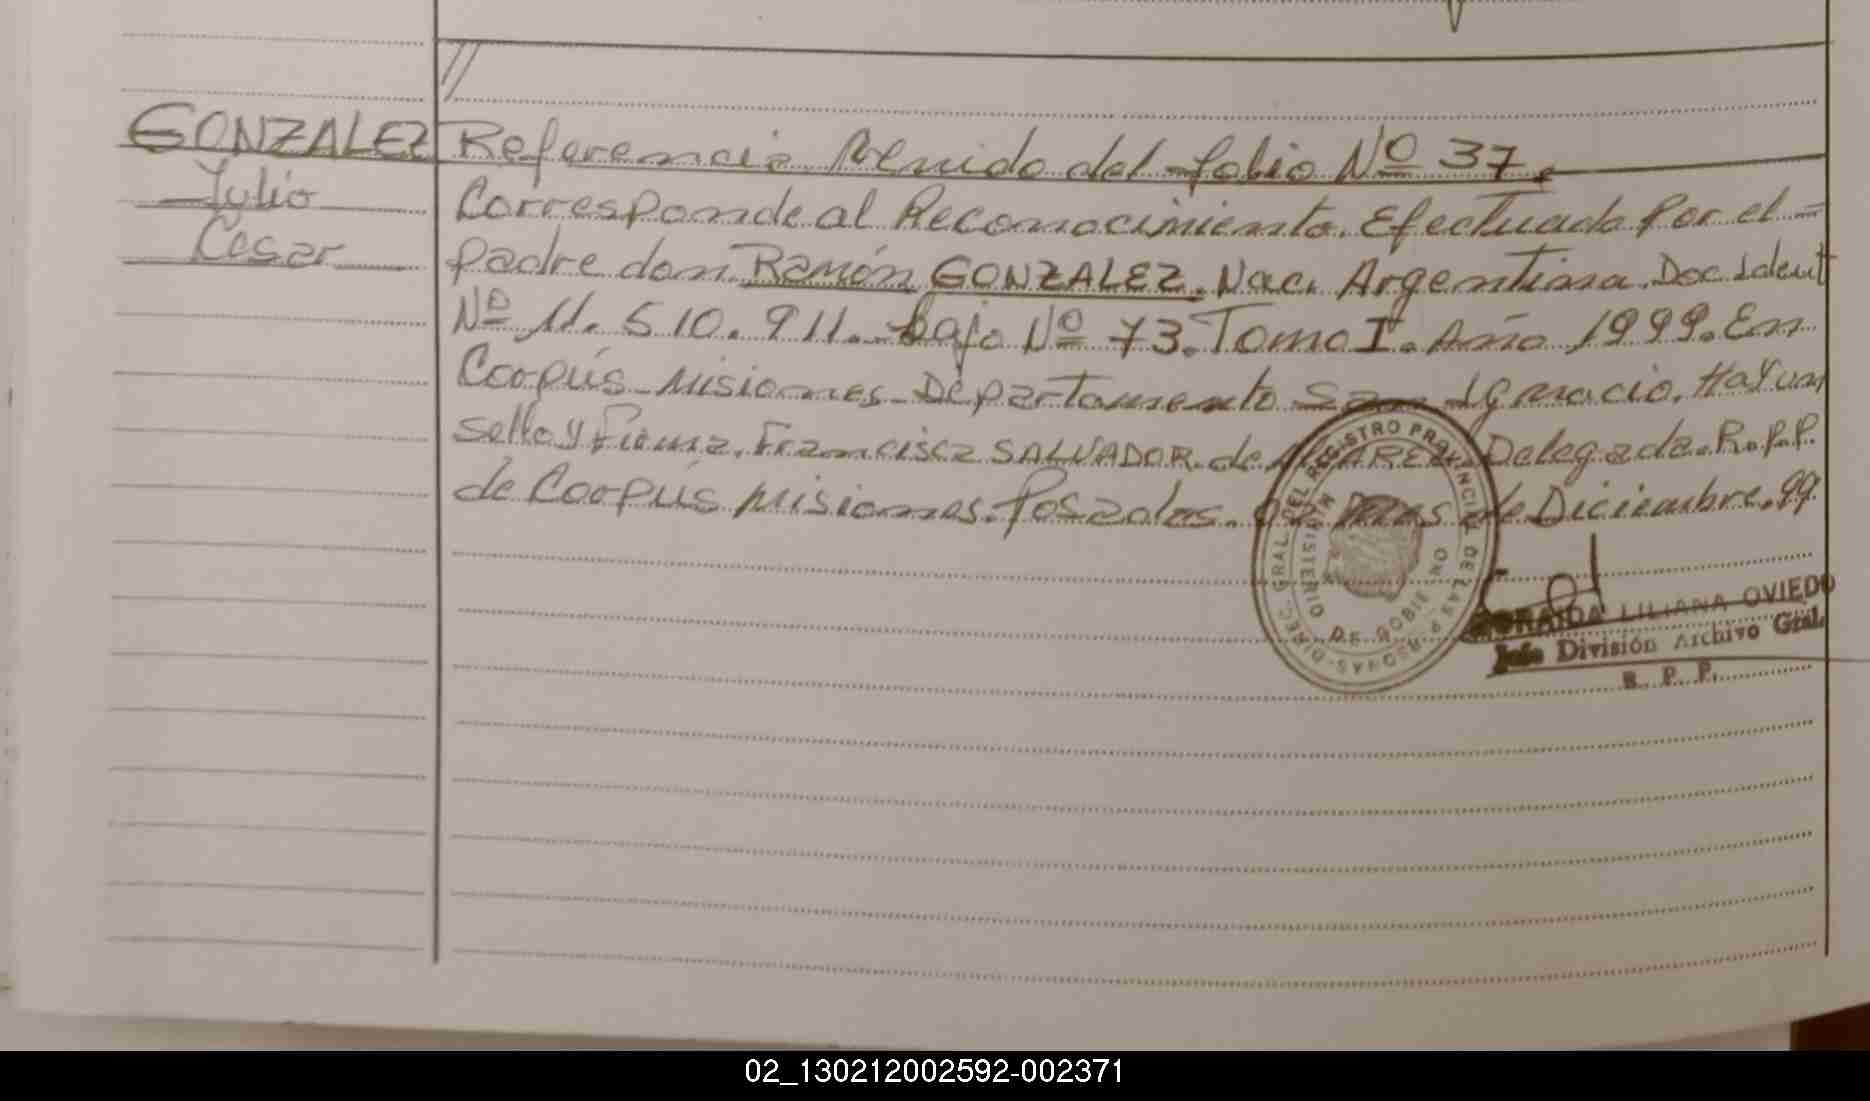 //
GONZALEZ
Julio
Cesar
Referencia Venido del folio Nº 37.
Corresponde al Reconocimiento. Efectuado por el =
padre don Ramón GONZALEZ. Nac. Argentina. Doc. Ident
Nº 11.510.911. bajo Nº 73. Tomo I. Año 1999. En
Corpús - Misiones - Departamento San Ignacio. Hay un
sello y firma. Francisca SALVADOR de ALVAREZ Delegada. R.P.P.
de Corpús Misiones. Posadas. de Diciembre. 99.
DIREC. GRAL. DEL REGISTRO PROVINCIAL DE LAS PERSONAS
MINISTERIO DE GOBIERNO
ZORAIDA LILIANA OVIEDO
Jefe División Archivo Gral.
R. P. P.
02_130212002592-002371